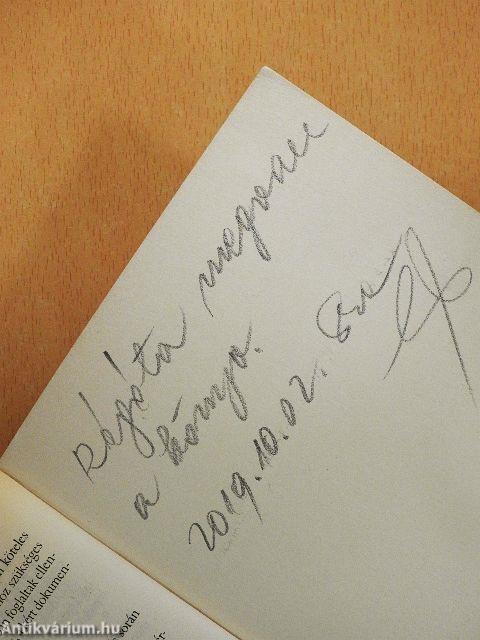 Régóta megvan
a könyv.
2019.10.02.
n köteles
oz szükséges
foglaltak ellen-
ért dokumen-
során
Antikvárium.hu